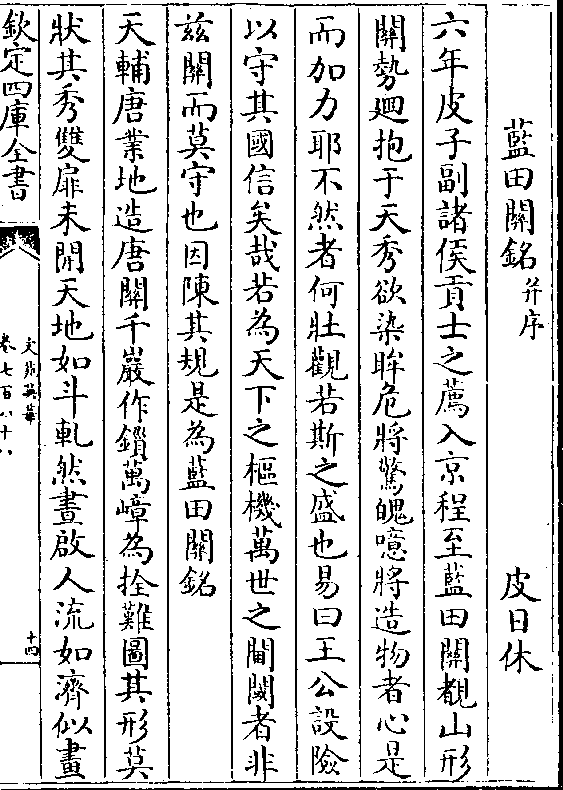 藍田關銘 并序 皮日休
六年皮子副諸侯貢士之薦入京程至藍田關覩山形
關勢廻抱于天秀欲染眸危將驚魄噫將造物者心是
而加力耶不然者何壯觀若斯之盛也易曰王公設險
以守其國信矣哉若為天下之樞機萬世之閫閾者非
兹關而莫守也因陳其規是為藍田關銘
天輔唐業地造唐關千巖作鎻萬嶂為拴難圖其形莫
狀其秀雙扉未開天地如斗軋然晝啟人流如濟似畫
欽定四庫全書
文苑英華
卷七百八十八
十四